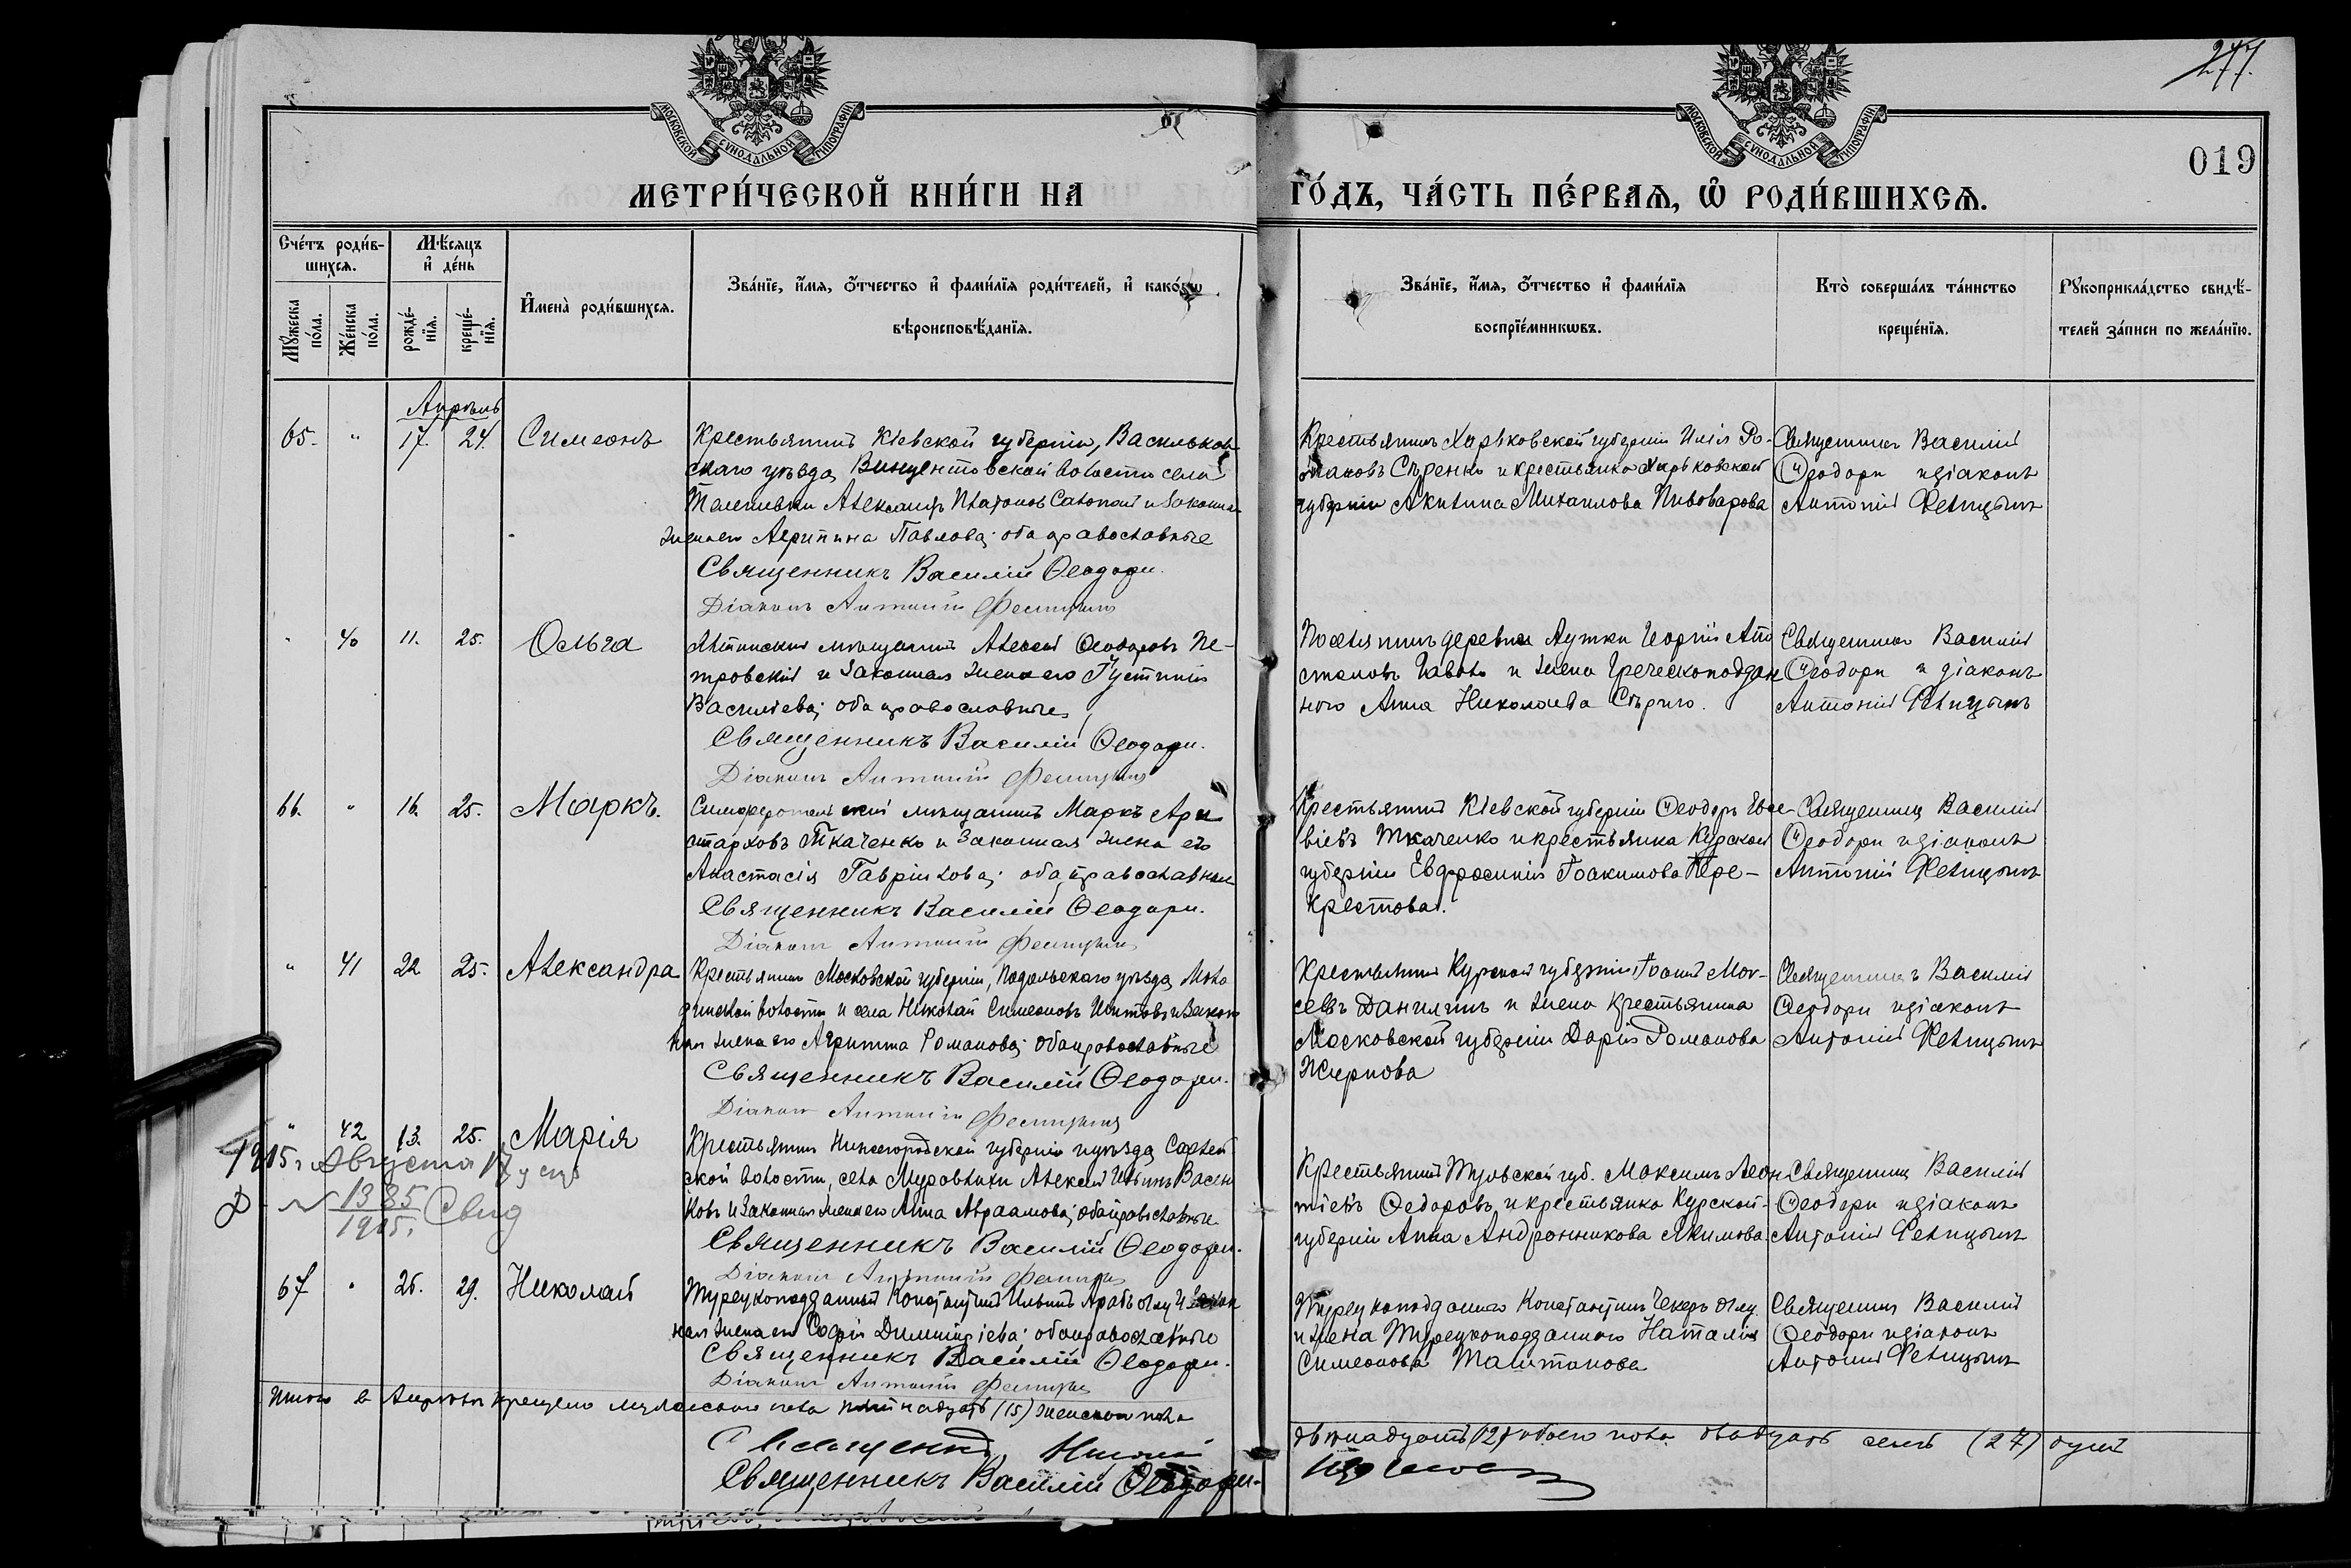 277.
019
МОСКОВСКОЙ СѴНОДАЛЬНОЙ ТИПОГРАФІИ
МОСКОВСКОЙ СѴНОДАЛЬНОЙ ТИПОГРАФІИ
МЕТРИ́ЧЕСКОЙ КНИ́ГИ НА ГО́ДЪ, ЧА́СТЬ ПЕ́РВАѦ, Ѽ РОДИ́ВШИХСѦ.
Сче́тъ роди́в-
шихсѧ.
Мꙋ́жеска по́ла.
Же́нска по́ла.
Мѣ́сѧцъ
и҆ де́нь
рожде́-
нїѧ.
креще́-
нїѧ.
И҆мена̀ роди́вшихсѧ.
Зва́нїе, и҆́мѧ, ѻ҆́тчество и҆ фами́лїѧ роди́телей, и҆ како́гѡ
вѣроисповѣ́данїѧ.
Зва́нїе, и҆́мѧ, ѻ҆́тчество и҆ фами́лїѧ
воспрїе́мникѡвъ.
Кто̀ соверша́лъ та́инство
креще́нїѧ.
Рꙋкоприкла́дство свидѣ́-
телей за́писи по жела́нїю.
Апрѣль
65. " 17. 24. Симеонъ
Крестьянинъ Кіевской губерніи, Васильков-
скаго уѣзда, Винцентовской волости села
Телешевки Александръ Платоновъ и законная
жена его Агрипина Павлова; оба православные
Священникъ Василій Ѳеодори.
Діаконъ Антоній Фелицынъ
Крестьянинъ Харьковской губерніи Илія Ро-
мановъ Сѣренко и крестьянка Харьковской
губерніи Акилина Михаилова Пивоварова
Священникъ Василій
Ѳеодори и діаконъ
Антоній Фелицынъ
" 40 11. 25. Ольга
Ялтинскій мѣщанинъ Алексій Ѳеодоровъ Пе-
тровскій и законная жена его Іустинія
Василіева; оба православные
Священникъ Василій Ѳеодори.
Діаконъ Антоній Фелицынъ
Поселянинъ деревни Аутки Георгій Апо
столовъ и жена Греческоподдан
ного Анна Николаева
Священникъ Василій
Ѳеодори и діаконъ
Антоній Фелицынъ
66. " 16. 25. Маркъ.
Симферопольскій мѣщанинъ Маркъ Ари
старховъ Ткаченко и законная жена его
Анастасія Гавріилова; оба православные
Священникъ Василій Ѳеодори.
Діаконъ Антоній Фелицынъ
Крестьянинъ Кіевской губерніи Ѳеодоръ Евсе-
віевъ Ткаченко и крестьянка Курской
губерніи Евфросинія Іоакимова Пере-
крестова.
Священникъ Василій
Ѳеодори и діаконъ
Антоній Фелицынъ
" 41 22 25. Александра
Крестьянинъ Московской губерніи, Подольскаго уѣзда, Моло
динской волости и села Николай Симеоновъ и закон
ная жена его Агрипина Романова; оба православные
Священникъ Василій Ѳеодори.
Діаконъ Антоній Фелицынъ
Крестьянинъ Курской губерніи Іоаннъ Мои-
сеевъ Данилинъ и жена крестьянина
Московской губерніи Дарія Романова
Жирнова
Священникъ Василій
Ѳеодори и діаконъ
Антоній Фелицынъ
" 42 13. 25. Марія
1915 г. Августа 17
№ 1385 / 1915. Свид
Крестьянинъ Нижегородской губерніи и уѣзда,
ской волости, села Алексій Ильинъ
ковъ и законная жена его Анна Авраамова; оба православные
Священникъ Василій Ѳеодори.
Діаконъ Антоній Фелицынъ
Крестьянинъ Тульской губ. Максимъ Леон
тіевъ Ѳедоровъ, и крестьянка Курской
губерніи Анна Андронникова Якимова.
Священникъ Василій
Ѳеодори и діаконъ
Антоній Фелицынъ
67 " 26. 29. Николай
Турецкоподданный Константинъ Ильинъ Арабъ оглу и закон
ная жена его Софія Димитріева; оба православные
Священникъ Василій Ѳеодори.
Діаконъ Антоній Фелицынъ
Турецкоподданного Константинъ Чекеръ оглу
и жена Турецкоподданного Наталія
Симеонова Таштанова
Священникъ Василій
Ѳеодори и діаконъ
Антоній Фелицынъ
Итого въ Апрѣлѣ крещено мужескаго пола пятнадцать (15) женскаго пола
двѣнадцать (12) обоего пола двадцать семь (27) душъ
Священникъ
Священникъ Василій Ѳеодори.